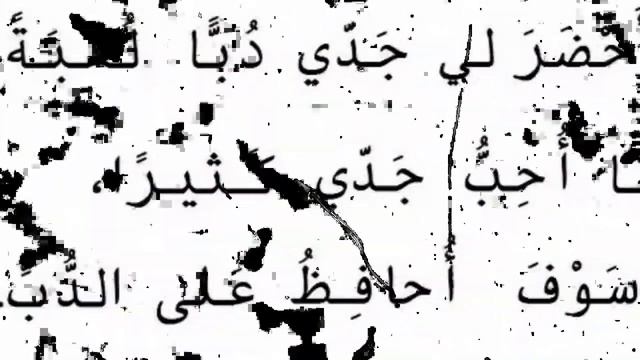 حْضَرَ لي جَدّي دُبًّا لُعْبَةً
نا أُحِبُّ جَدّي كَثيرًا،
سَوْفَ أُحافِظُ عَلى الدُّبِّ